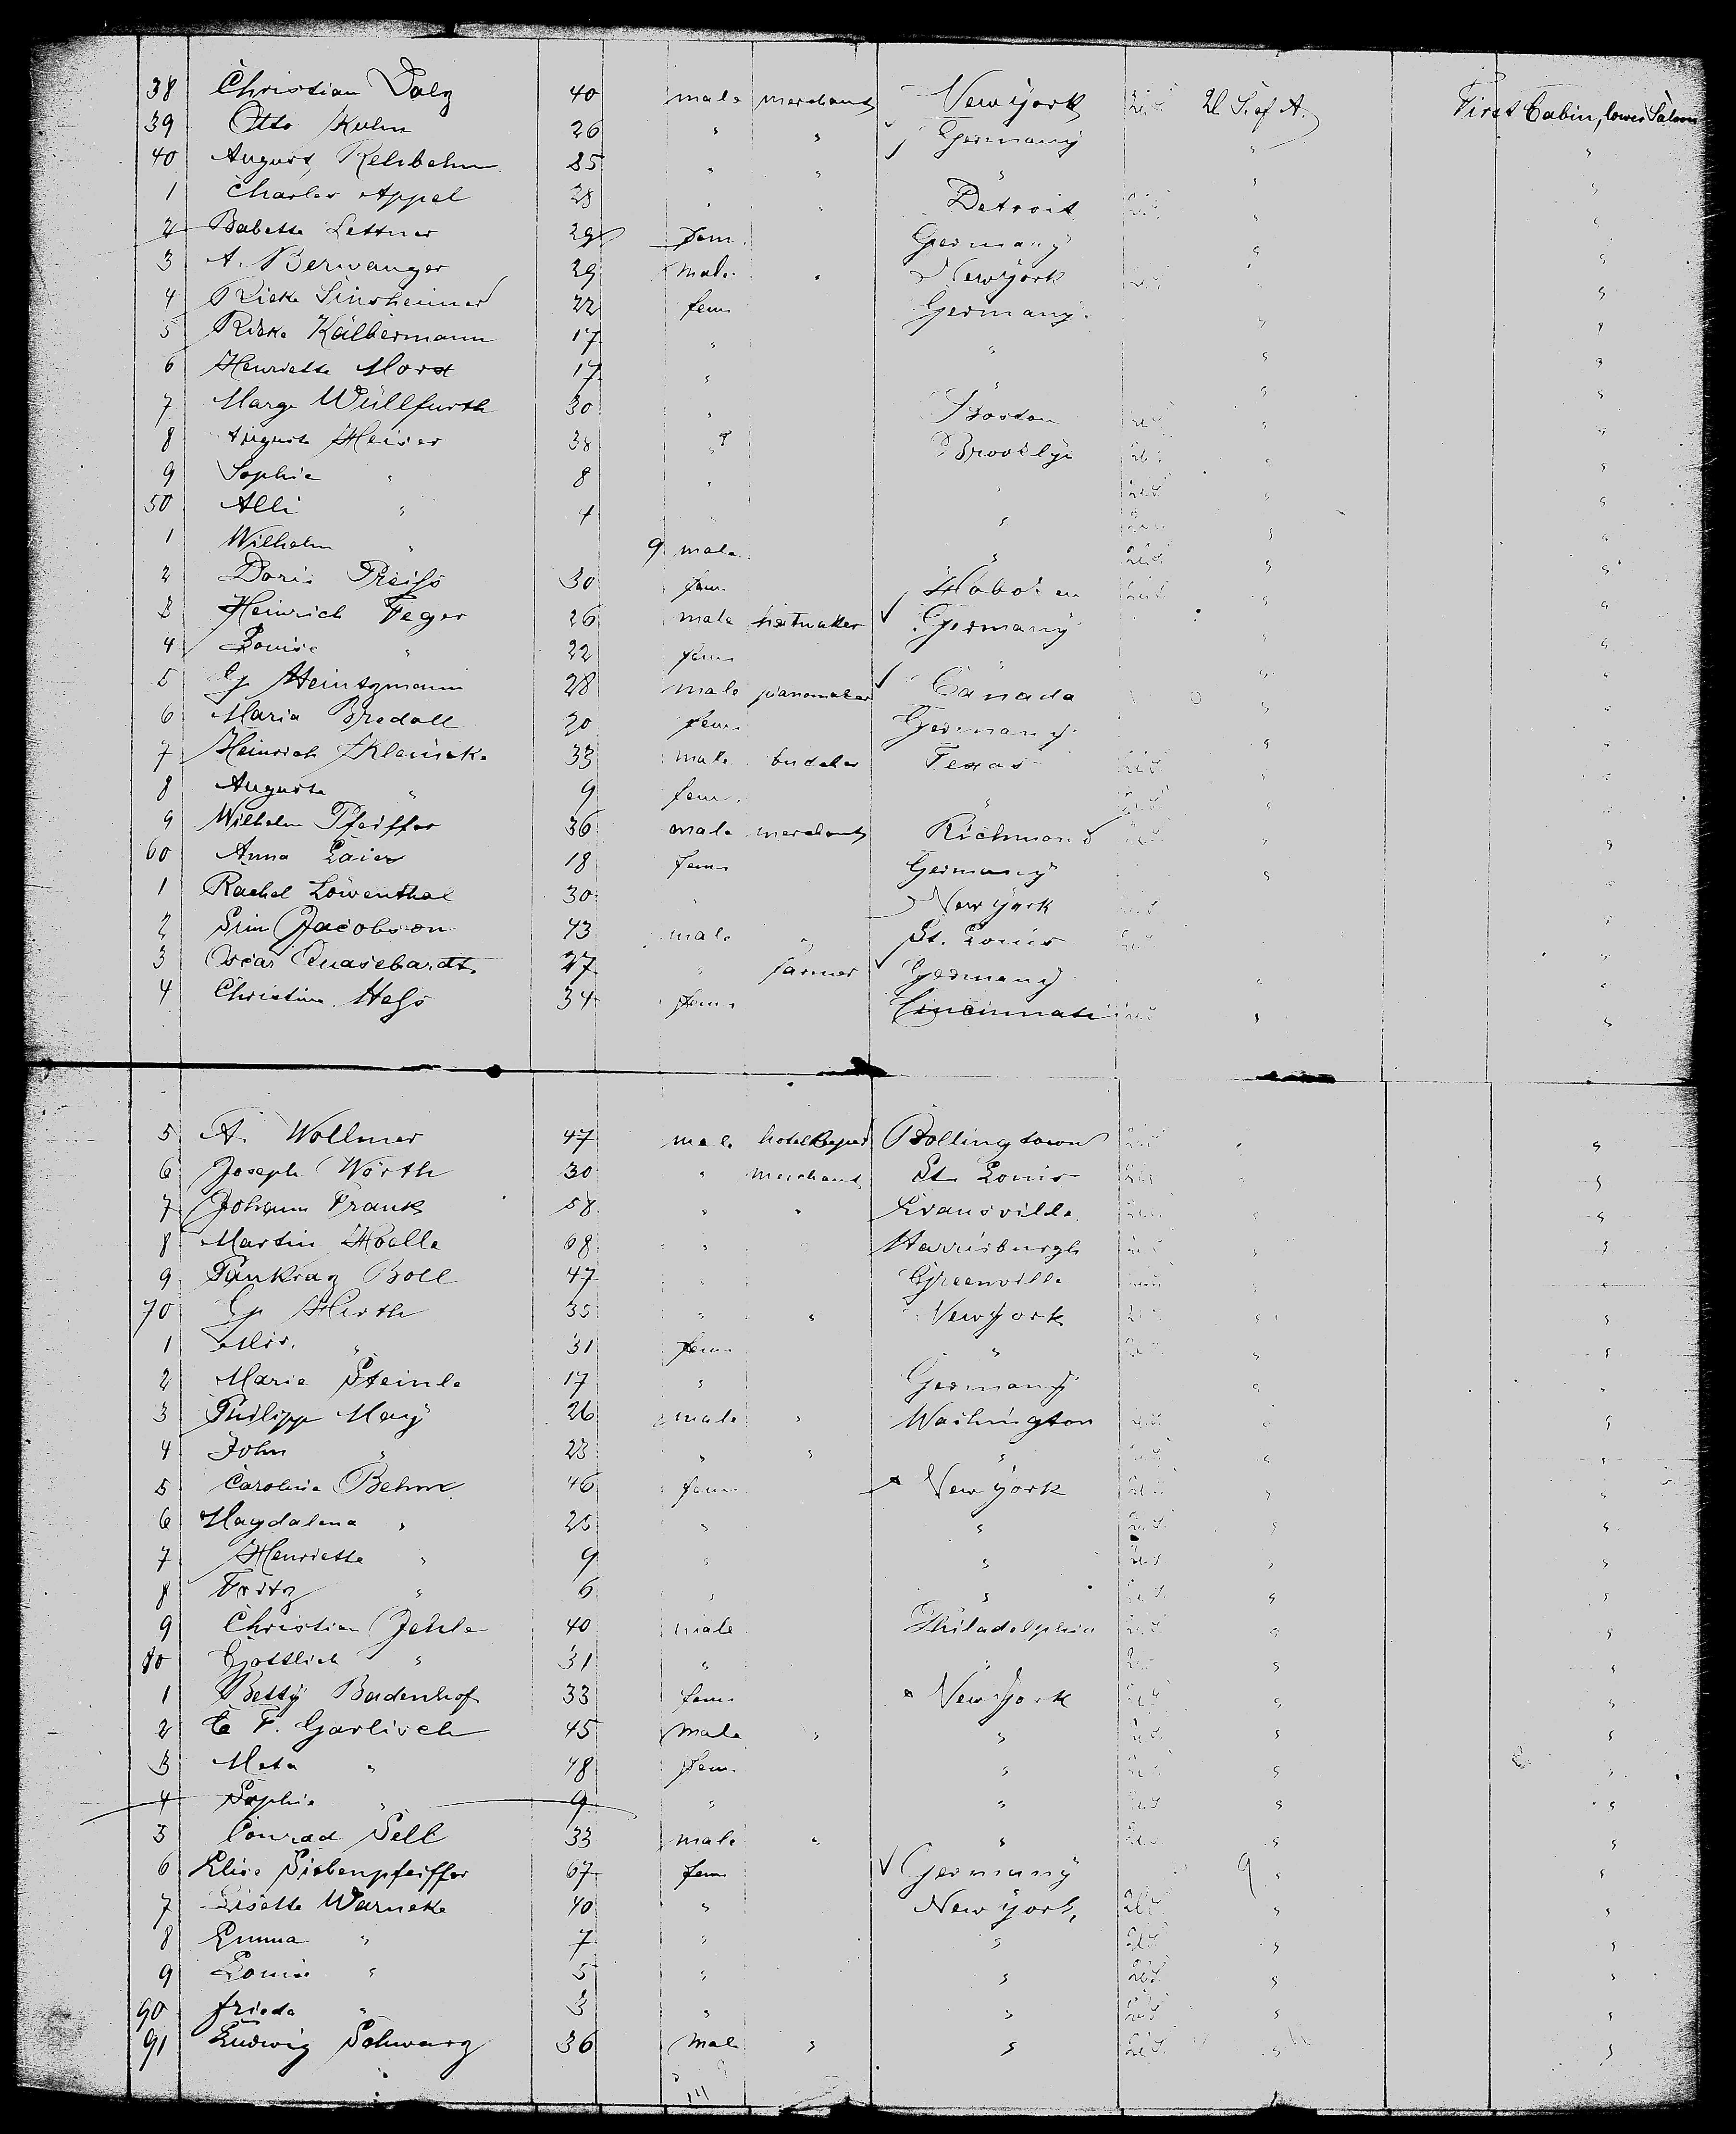 38 Christian Dolg 40 male merchant New York U.S. U. S. of A. First Cabin, lower Saloon
39 Otto Kuhn 26 " " Germany " "
40 August Rehbehn 25 " " " " "
1 Charles Appel 28 " " Detroit U.S. " "
2 Babette Lettner 29 fem. Germany " "
3 A. Berwanger 29 male " New York U.S. "
4 Rieke Sinsheimer 22 fem Germany " "
5 Rieke Kälbermann 17 " " " "
6 Henriette Mord 17 " " " "
7 Marg. Wüllfurth 30 " Boston U.S. " "
8 Auguste Heiser 38 " Brooklyn U.S. " "
9 Sophie " 8 " " U.S. " "
50 Alli " 4 " " U.S. " "
1 Wilhelm " 9 male " U.S. " "
2 Doris Preiss 30 fem Hoboken U.S. " "
3 Heinrich Feger 26 male hatmaker Germany " "
4 Louise " 22 fem " " "
5 G Heintzmann 28 male pianomaker Canada " "
6 Maria Bredall 20 fem Germany " "
7 Heinrich Klencke 33 male Texas U.S. " "
8 Auguste " 9 fem " U.S. " "
9 Wilhelm Pfeiffer 36 male merchant Richmond U.S. " "
60 Anna Laier 18 fem Germany " "
1 Rachel Löwenthal 30 " New York U.S. "
2 Sim Jacobson 43 male " St. Louis U.S. "
3 Oscar Quasebardt 27 " farmer Germany " "
4 Christine Hess 34 fem Cincinnati U.S. " "
5 A. Wollmer 47 male hotelkeeper Bollingtown U.S. " "
6 Joseph Wörth 30 " merchant St. Louis U.S. " "
7 Johann Frank 58 " " Evansville U.S. " "
8 Martin Hoelle 68 " Harrisburgh U.S. " "
9 Pankraz Boll 47 " Greenville U.S. " "
70 G Hirth 35 " " New York U.S. " "
1 Mrs. " 31 fem " U.S. " "
2 Marie Steinle 17 " Germany " "
3 Philipp May 26 male " Washington U.S. " "
4 John " 23 " " " U.S. " "
5 Caroline Behm 46 fem New York U.S. " "
6 Magdalena " 23 " " U.S. " "
7 Henriette " 9 " " U.S. " "
8 Fritz " 6 " " U.S. " "
9 Christian Jehle 40 male Philadelphia U.S. " "
80 Gottlieb " 31 " " U.S. " "
1 Betty Badenhof 33 fem New York U.S. " "
2 C F. Garlisch 45 male " " U.S. " "
3 Meta " 48 fem " U.S. " "
4 Sophie " 9 " " U.S. " "
5 Conrad Sell 33 male " " U.S. " "
6 Elise Siebenpfeiffer 67 fem Germany " "
7 Lisette Warneke 40 " New York U.S. " "
8 Emma " 7 " " U.S. " "
9 Louise " 5 " " U.S. " "
90 Frieda " 3 " " U.S. " "
91 Ludwig Schwarz 36 male " " U.S. " "